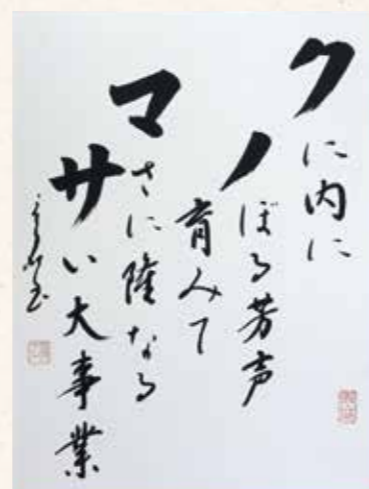 クに内に
ノぼる芳声
育みて
マさに隆なる
サい大事業